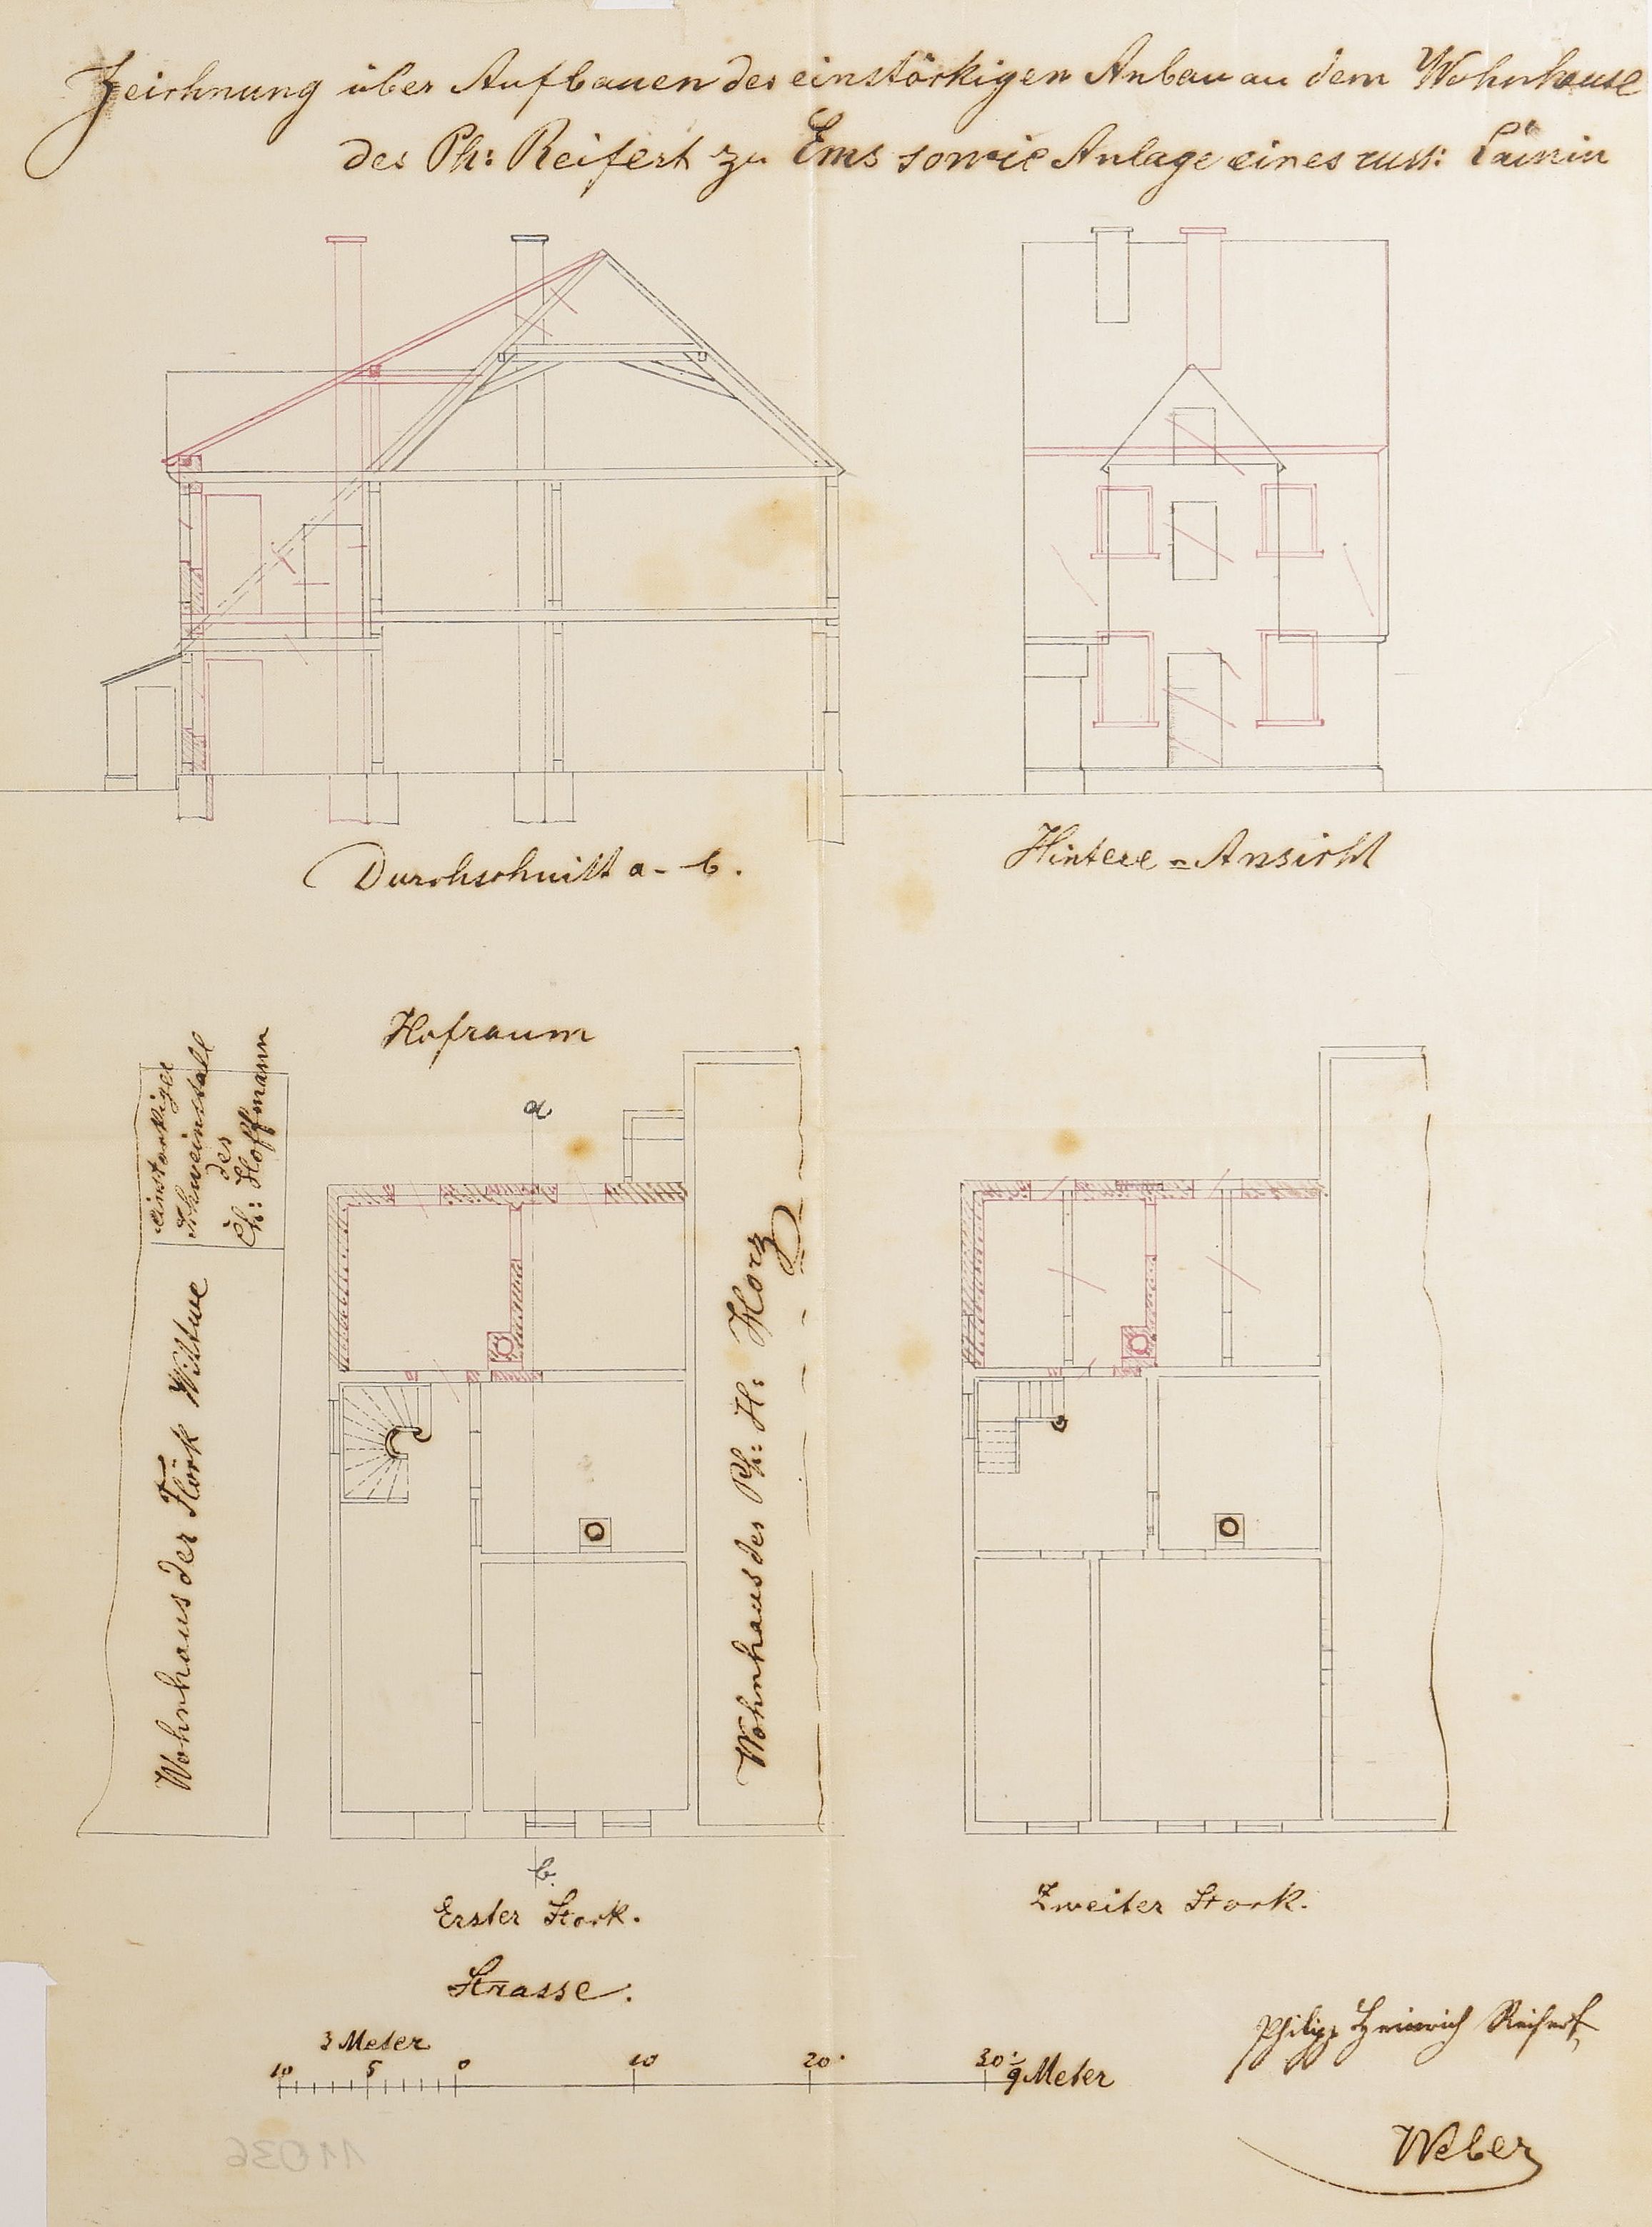 Zeichnung über Aufbauen des einstöckigen Anbau an dem Wohnhause
des Ph: Reifert zu Ems sowie Anlage eines russ: Camin
Durchschnitt a - b.
Hintere = Ansicht
Hofraum
a
einstöckiger
Schweinstall
des
Ch: Hoffmann
Wohnhaus der Flöck Wittwe
Wohnhaus des Ph: H: Horz
b.
Erster Stock.
Zweiter Stock.
Strasse.
3 Meter
10 5 0 10 20' 30'
9 Meter
Philipp Heinrich Reifert
Weber
11036